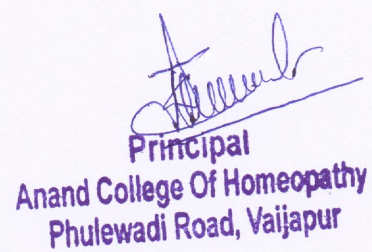 Principal
Anand College Of Homeopathy
Phulewadi Road, Vaijapur